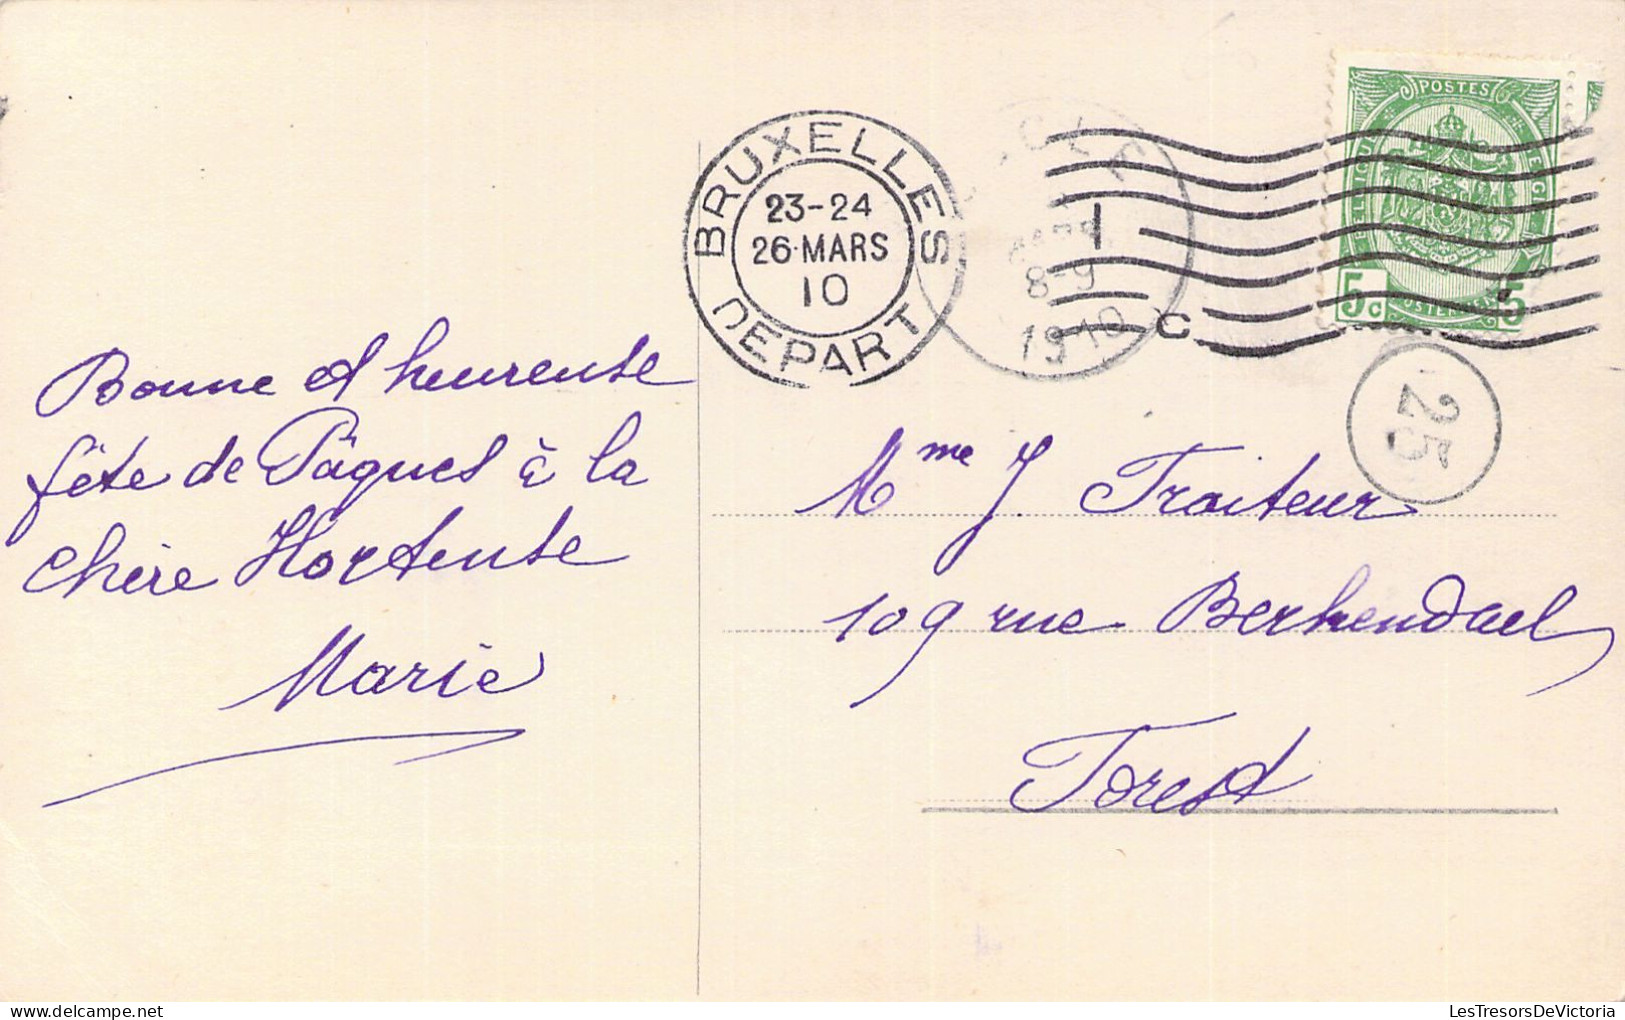 Bonne et heureuse
fête de Pâques à la
chère Hortense
Marie
BRUXELLES
23-24
26·MARS
10
DEPART
8-9
1910
1
C
POSTES
5c
5
25
Mme J. Traiteur
109 rue Berkendael
Forest
LesTresorsDeVictoria